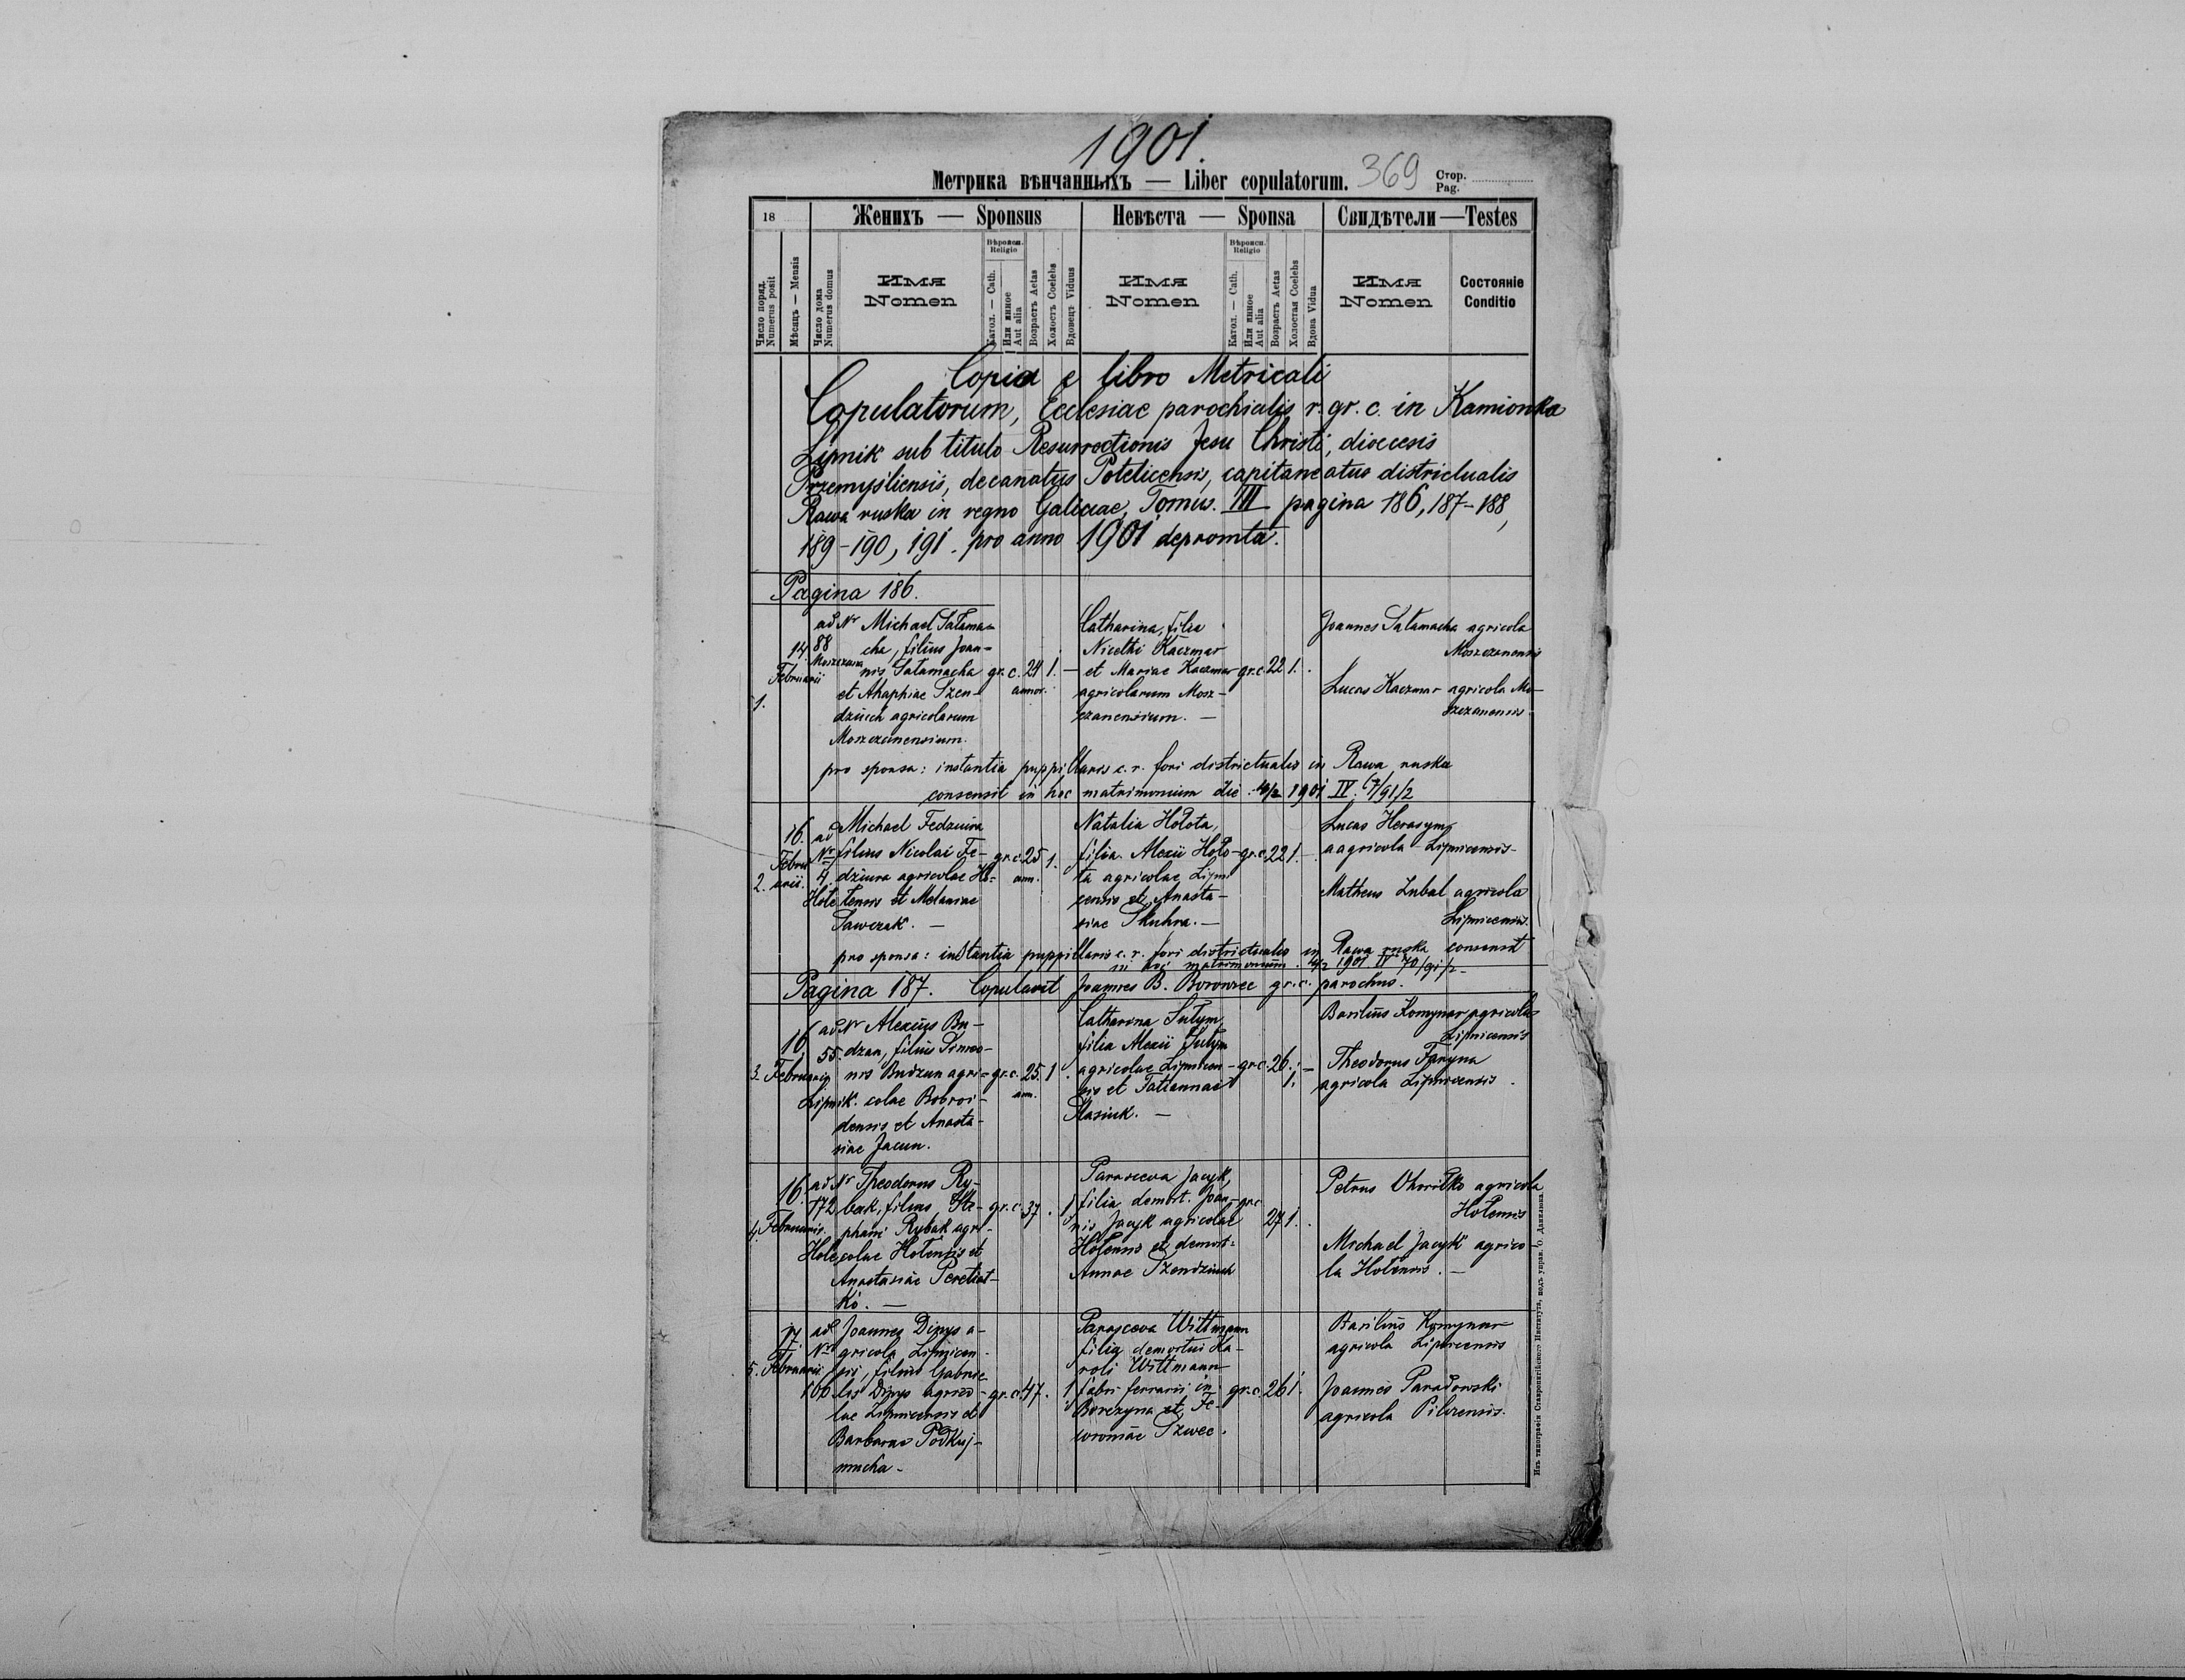 1901.
Метрика вѣнчанныхъ — Liber copulatorum. 369 Стор. Pag.
18
Женихъ — Sponsus
Невѣста — Sponsa
Свидѣтели — Testes
Число поряд. Numerus posit
Мѣсяцъ — Mensis
Число дома Numerus domus
Имя Nomen
Вѣроисп. Religio
Катол. — Cath.
Или инное Aut alia
Возрастъ Aetas
Холостъ Coelebs
Вдовецъ Viduus
Имя Nomen
Вѣроисп. Religio
Катол. — Cath.
Или инное Aut alia
Возрастъ Aetas
Холостая Coelebs
Вдова Vidua
Имя Nomen
Состоянiе Conditio
Copia e libro Metricali
Copulatorum, Ecclesiae parochialis r. gr. c. in Kamionka
Lipnik sub titulo Resurrectionis Jesu Christi, dioecesis
Przemysliensis, decanatus Potelicensis, capitaneatus districtualis
Rawa ruska in regno Galiciae, Tomus. III pagina 186, 187-188,
189-190, 191. pro anno 1901 depromta.
Pagina 186.
1.
14 Februarii
ad Nr 88
Michael Sałama=
cha, filius Joan=
nis Sałamacha
et Ahaphiae Szen-
dziuch agricolarum
Moszczanensium.
gr. c. 24 annor. 1. —
Catharina, filia
Nicethi Kaczmar
et Mariae Kaczmar
agricolarum Mosz-
czanensium. —
gr. c. 22 1.
Joannes Sałamacha agricola
Moszczanensis
Lucas Kaczmar agricola Mo-
szczanensis
pro sponsa: instantia puppillaris c. r. fori districtualis in Rawa ruska
consensit in hoc matrimonium die 1901 IV.
2.
16. Febru
arii.
ad Nr 4
Hole
Michael Fedziura
filius Nicolai Fe-
dziura agricolae Ho=
lensis et Melaniae
Sawczak. —
gr. c. 25 ann. 1.
Natalia Hołota,
filia Alexii Hoło-
ta agricolae Lipni
censis et Anasta-
siae Skuhra. —
gr. c. 22 1. —
Lucas Herasym
agricola Lipnicensis
Matheus Lubal agricola
Lipnicensis.
pro sponsa: instantia puppillaris c. r. fori districtualis in Rawa ruska consensit
in hoc matrimonium 1901. IV
Pagina 187. Copulavit Joannes B. Borowiec gr. c. parochus.
3.
16 Februarii
ad Nr 55.
Lipnik.
Alexius Bu-
dzan, filius Simeo-
nis Budzan agri=
colae Bobroi-
densis et Anasta-
siae Jacun.
gr. c. 25. ann. 1.
Catharina Sutym
filia Alexii Sutym
agricolae Lipnicen-
sis et Tatiannae
Stasiuk. —
gr. c. 26. 1. —
Basilius Komynar agricola
Lipnicensis
Theodorus Faryna
agricola Lipnicensis.
4.
16. Februarii.
ad Nr 172
Hole
Theodorus Ry-
bak, filius Ste-
phani Rybak agri-
colae Holensis et
Anastasiae Peretiat-
ko. —
gr. c. 37. 1
Parasceva Jacyk,
filia demort. Joan-
nis Jacyk agricolae
Holensis et demort=
Annae Szendziuch
gr. c. 27 1.
Petrus Uhoriłko agricola
Holensis
Michael Jacyk agrico-
la Holensis. —
5.
17 Februarii
ad Nr 100
Joannes Dipys a-
gricola Lipnicen-
sis, filius Gabrie-
lis Dipys agrico-
lae Lipnicensis et
Barbarae Podkuj-
mucha.
gr. c. 47. 1
Parasceva Wittmann
filia demortui Ka-
roli Wittmann
fabri ferrarii in
et Fe-
wroniae Szwec.
gr. c. 26 1.
Basilius Komynar
agricola Lipnicensis
Joannes Paradowski
agricola
Изъ типографіи Ставропигійского Института, подъ управ. О. Данилюка.